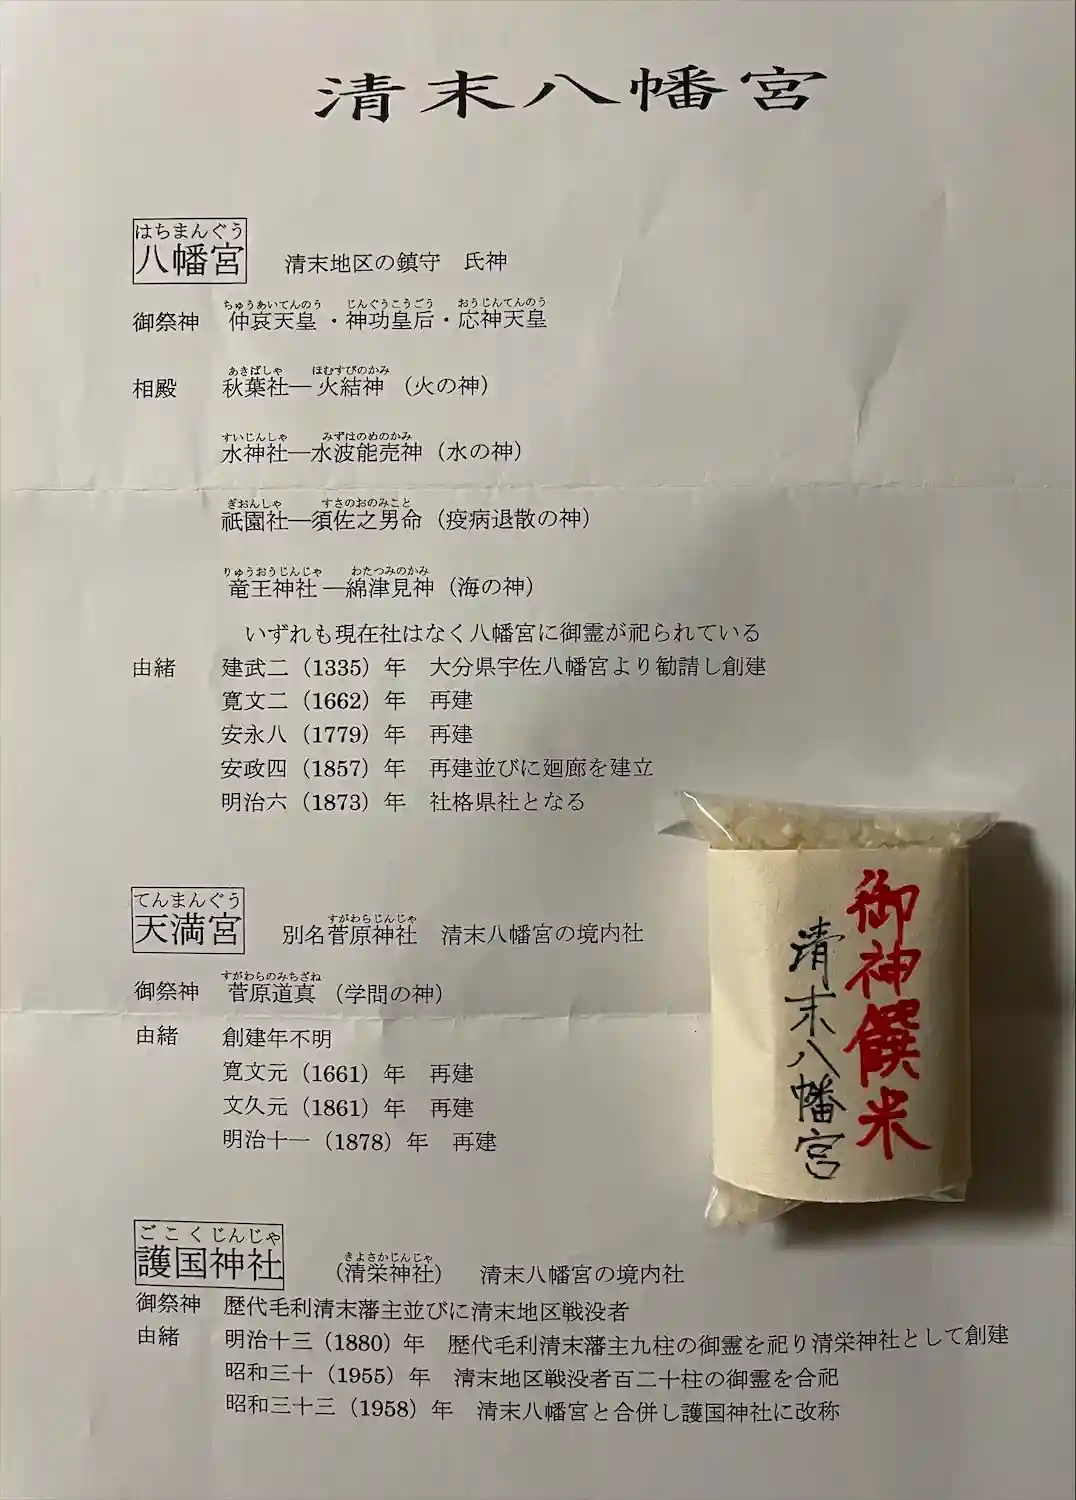 清末八幡宮
はちまんぐう
八幡宮 清末地区の鎮守 氏神
ちゅうあいてんのう じんぐうこうごう おうじんてんのう
御祭神 仲哀天皇・神功皇后・応神天皇
あきばしゃ ほむすびのかみ
相殿 秋葉社―火結神（火の神）
すいじんしゃ みずはのめのかみ
水神社―水波能売神（水の神）
ぎおんしゃ すさのおのみこと
祇園社―須佐之男命（疫病退散の神）
りゅうおうじんじゃ わたつみのかみ
竜王神社―綿津見神（海の神）
いずれも現在社はなく八幡宮に御霊が祀られている
由緒 建武二（1335）年 大分県宇佐八幡宮より勧請し創建
寛文二（1662）年 再建
安永八（1779）年 再建
安政四（1857）年 再建並びに廻廊を建立
明治六（1873）年 社格県社となる
てんまんぐう
天満宮 別名菅原神社 清末八幡宮の境内社
すがわらじんじゃ
すがわらのみちざね
御祭神 菅原道真（学問の神）
由緒 創建年不明
寛文元（1661）年 再建
文久元（1861）年 再建
明治十一（1878）年 再建
ごこくじんじゃ
きよさかじんじゃ
護国神社 （清栄神社） 清末八幡宮の境内社
御祭神 歴代毛利清末藩主並びに清末地区戦没者
由緒 明治十三（1880）年 歴代毛利清末藩主九柱の御霊を祀り清栄神社として創建
昭和三十（1955）年 清末地区戦没者百二十柱の御霊を合祀
昭和三十三（1958）年 清末八幡宮と合併し護国神社に改称
御神饌米
清末八幡宮